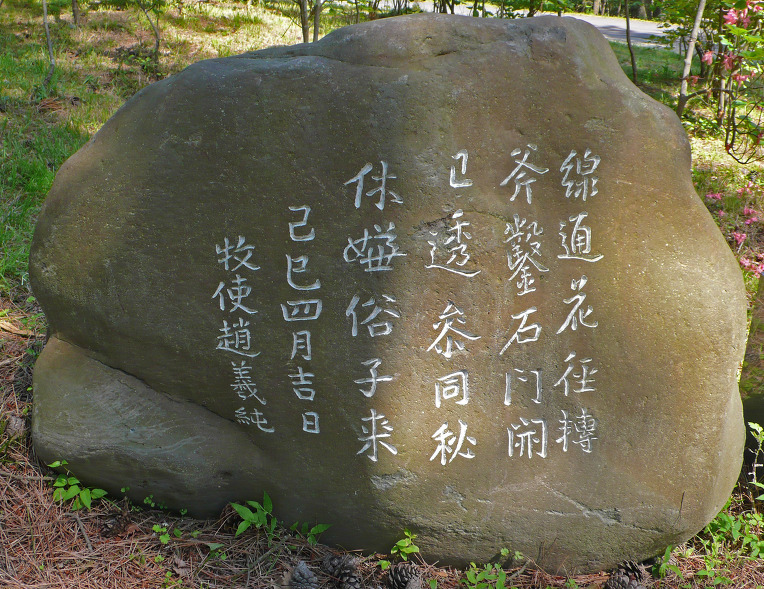 線通花径轉
斧鑿石門開
已透叅同秘
休嫌俗子来
己巳四月吉日
牧使趙羲純